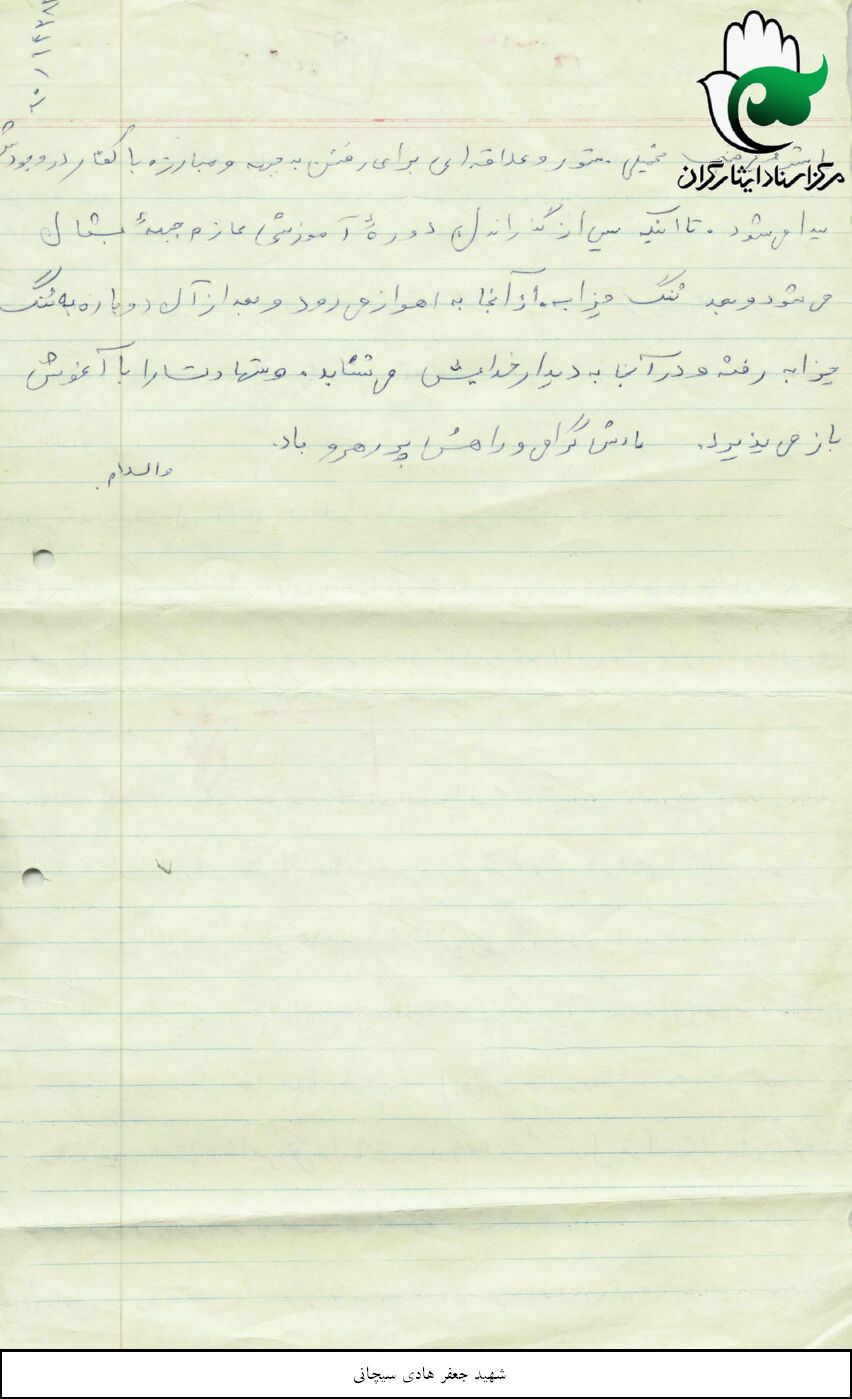 مرکز اسناد ایثارگران
خیلی شور و علاقه‌ای برای رفتن به جبهه و مبارزه با کفار در وجودش
پیدا می‌شود. تا اینکه پس از گذراندن دورهٔ آموزشی عازم جبههٔ
می‌شود و بعد تنگ چزابه. از آنجا به اهواز می‌رود و بعد از آن دوباره به تنگ
چزابه رفته و در آنجا به دیدار خدایش می‌شتابد. و شهادت را با آغوش
باز می‌پذیرد. یادش گرامی و راهش پر رهرو باد.
والسلام.
شهید جعفر هادی سیچانی